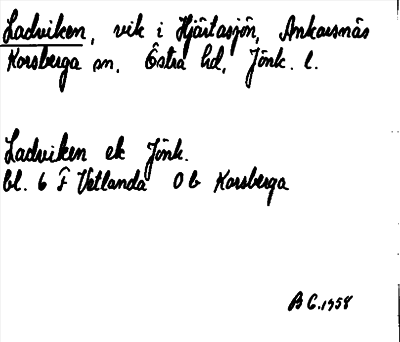 Ladviken, vik i Hjärtasjön, Ankarsnäs
Korsberga sn. Östra hd, Jönk. l.
Ladviken ek Jönk.
bl. 6 F Vetlanda O b Korsberga
B C. 1958